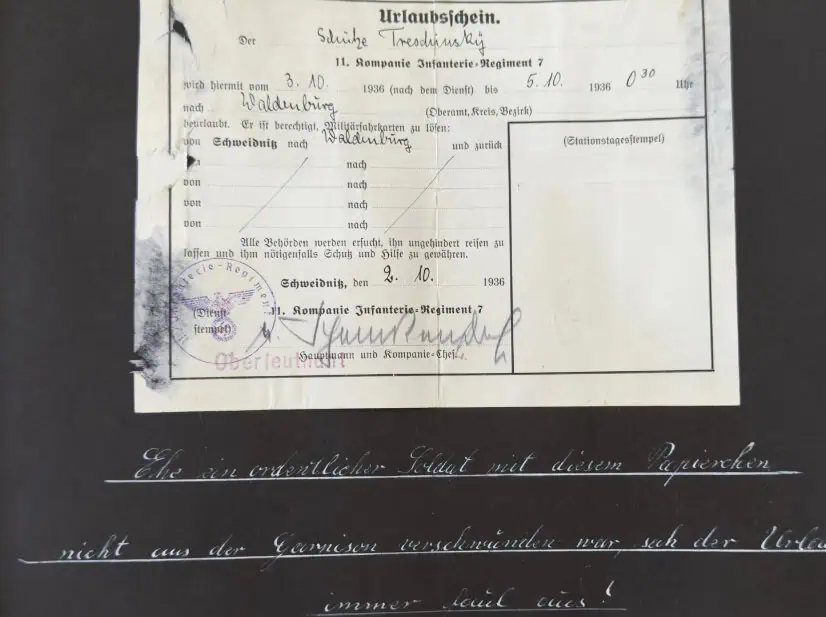 Urlaubsschein.
Der Schütze Treschinsky
11. Kompanie Infanterie-Regiment 7
wird hiermit vom 3. 10. 1936 (nach dem Dienst) bis 5. 10. 1936 0³⁰ Uhr
nach Waldenburg (Oberamt, Kreis, Bezirk)
beurlaubt. Er ist berechtigt, Militärfahrkarten zu lösen:
von Schweidnitz nach Waldenburg und zurück
(Stationstagesstempel)
nach
von nach
von nach
von nach
Alle Behörden werden ersucht, ihn ungehindert reisen zu
lassen und ihm nötigenfalls Schutz und Hilfe zu gewähren.
Schweidnitz, den 2. 10. 1936
Infanterie-Regiment
11. Kompanie Infanterie-Regiment 7
(Dienst-
stempel)
Oberleutnant
(Hauptmann und Kompanie-Chef
Ehe ein ordentlicher Soldat mit diesem Papierchen
nicht aus der Garnison verschwunden war, sah der Urlau
immer faul aus!